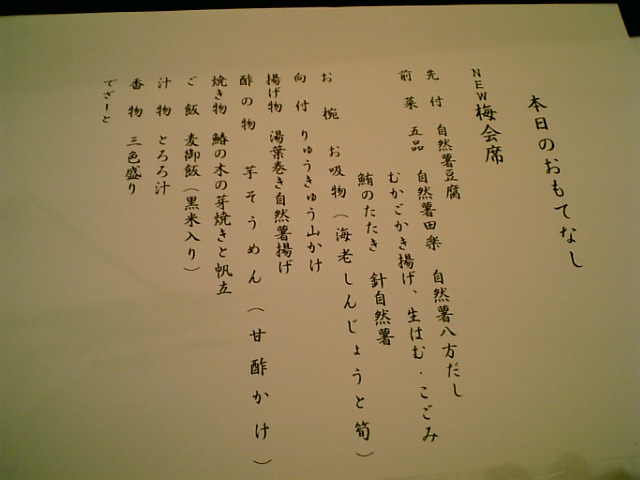 本日のおもてなし
NEW梅会席
先付 自然薯豆腐 自然薯八方だし
前菜 五品 自然薯田楽 生はむ・こごみ
むかごかき揚げ、
鮪のたたき 針自然薯
お椀 お吸物(海老しんじょうと筍)
向付 りゅうきゅう山かけ
揚げ物 湯葉巻き自然薯揚げ
酢の物 芋そうめん(甘酢かけ)
焼き物 鰆の木の芽焼きと帆立
ご飯 麦御飯(黒米入り)
汁物 とろろ汁
香物 三色盛り
でざーと